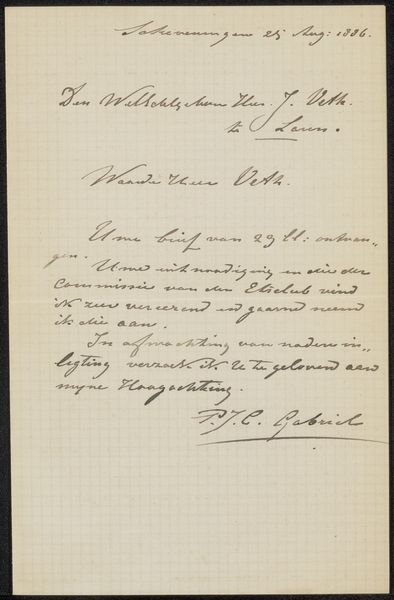 Scheveningen 25 Aug: 1886.
Den WelEdelgeboren Heer J. Veth.
te Laren.
Waarde Heer Veth.
Uwe brief van 23 ll: ontvan„
gen.
Uwe uitnoodiging en die der
Commissie van den Etsclub vind
ik zeer vereerend en gaarne neem
ik die aan.
In afwachting van nadere in„
ligting verzoek ik U te gelooven aan
mijne Hoogachting.
P.J.C. Gabriel